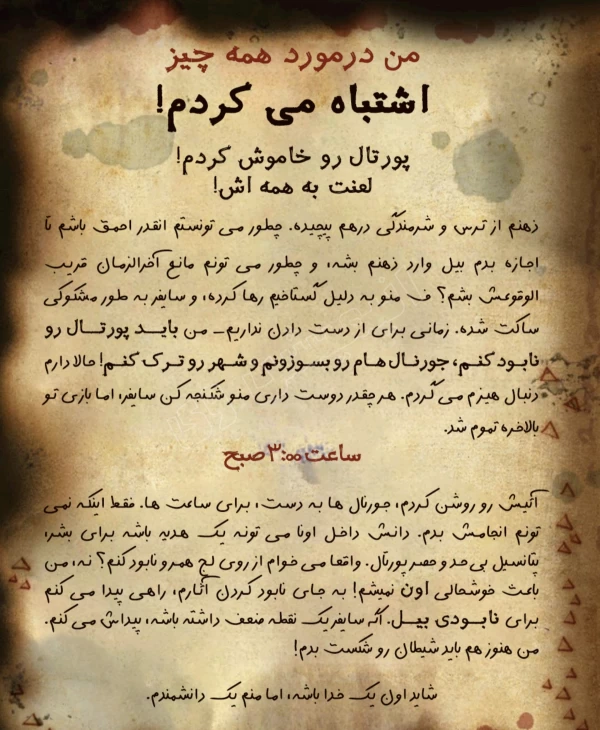 من درمورد همه چیز
اشتباه می کردم!
پورتال رو خاموش کردم!
لعنت به همه اش!
ذهنم از ترس و شرمندگی درهم پیچیده. چطور می تونستم انقدر احمق باشم تا
اجازه بدم بیل وارد ذهنم بشه، و چطور می تونم مانع آخرالزمان قریب
الوقوعش بشم؟ ف منو به دلیل گستاخیم رها کرده، و سایفر به طور مشکوکی
ساکت شده. زمانی برای از دست دادن نداریم_ من باید پورتال رو
نابود کنم، جورنال هام رو بسوزونم و شهر رو ترک کنم! حالا دارم
دنبال هیزم می گردم. هر چقدر دوست داری منو شکنجه کن سایفر، اما بازی تو
بالاخره تموم شد.
ساعت ۳:۰۰ صبح
آتیش رو روشن کردم، جورنال ها به دست، برای ساعت ها. فقط اینکه نمی
تونم انجامش بدم. دانش داخل اونا می تونه یک هدیه باشه برای بشر،
پتانسیل بی حد و حصر پورتال. واقعا می خوام از روی لج همرو نابود کنم؟ نه، من
باعث خوشحالی اون نمیشم! به جای نابود کردن آثارم، راهی پیدا می کنم
برای نابودی بیل. اگر سایفر یک نقطه ضعف داشته باشه، پیداش می کنم.
من هنوز هم باید شیطان رو شکست بدم!
شاید اون یک خدا باشه، اما منم یک دانشمندم.